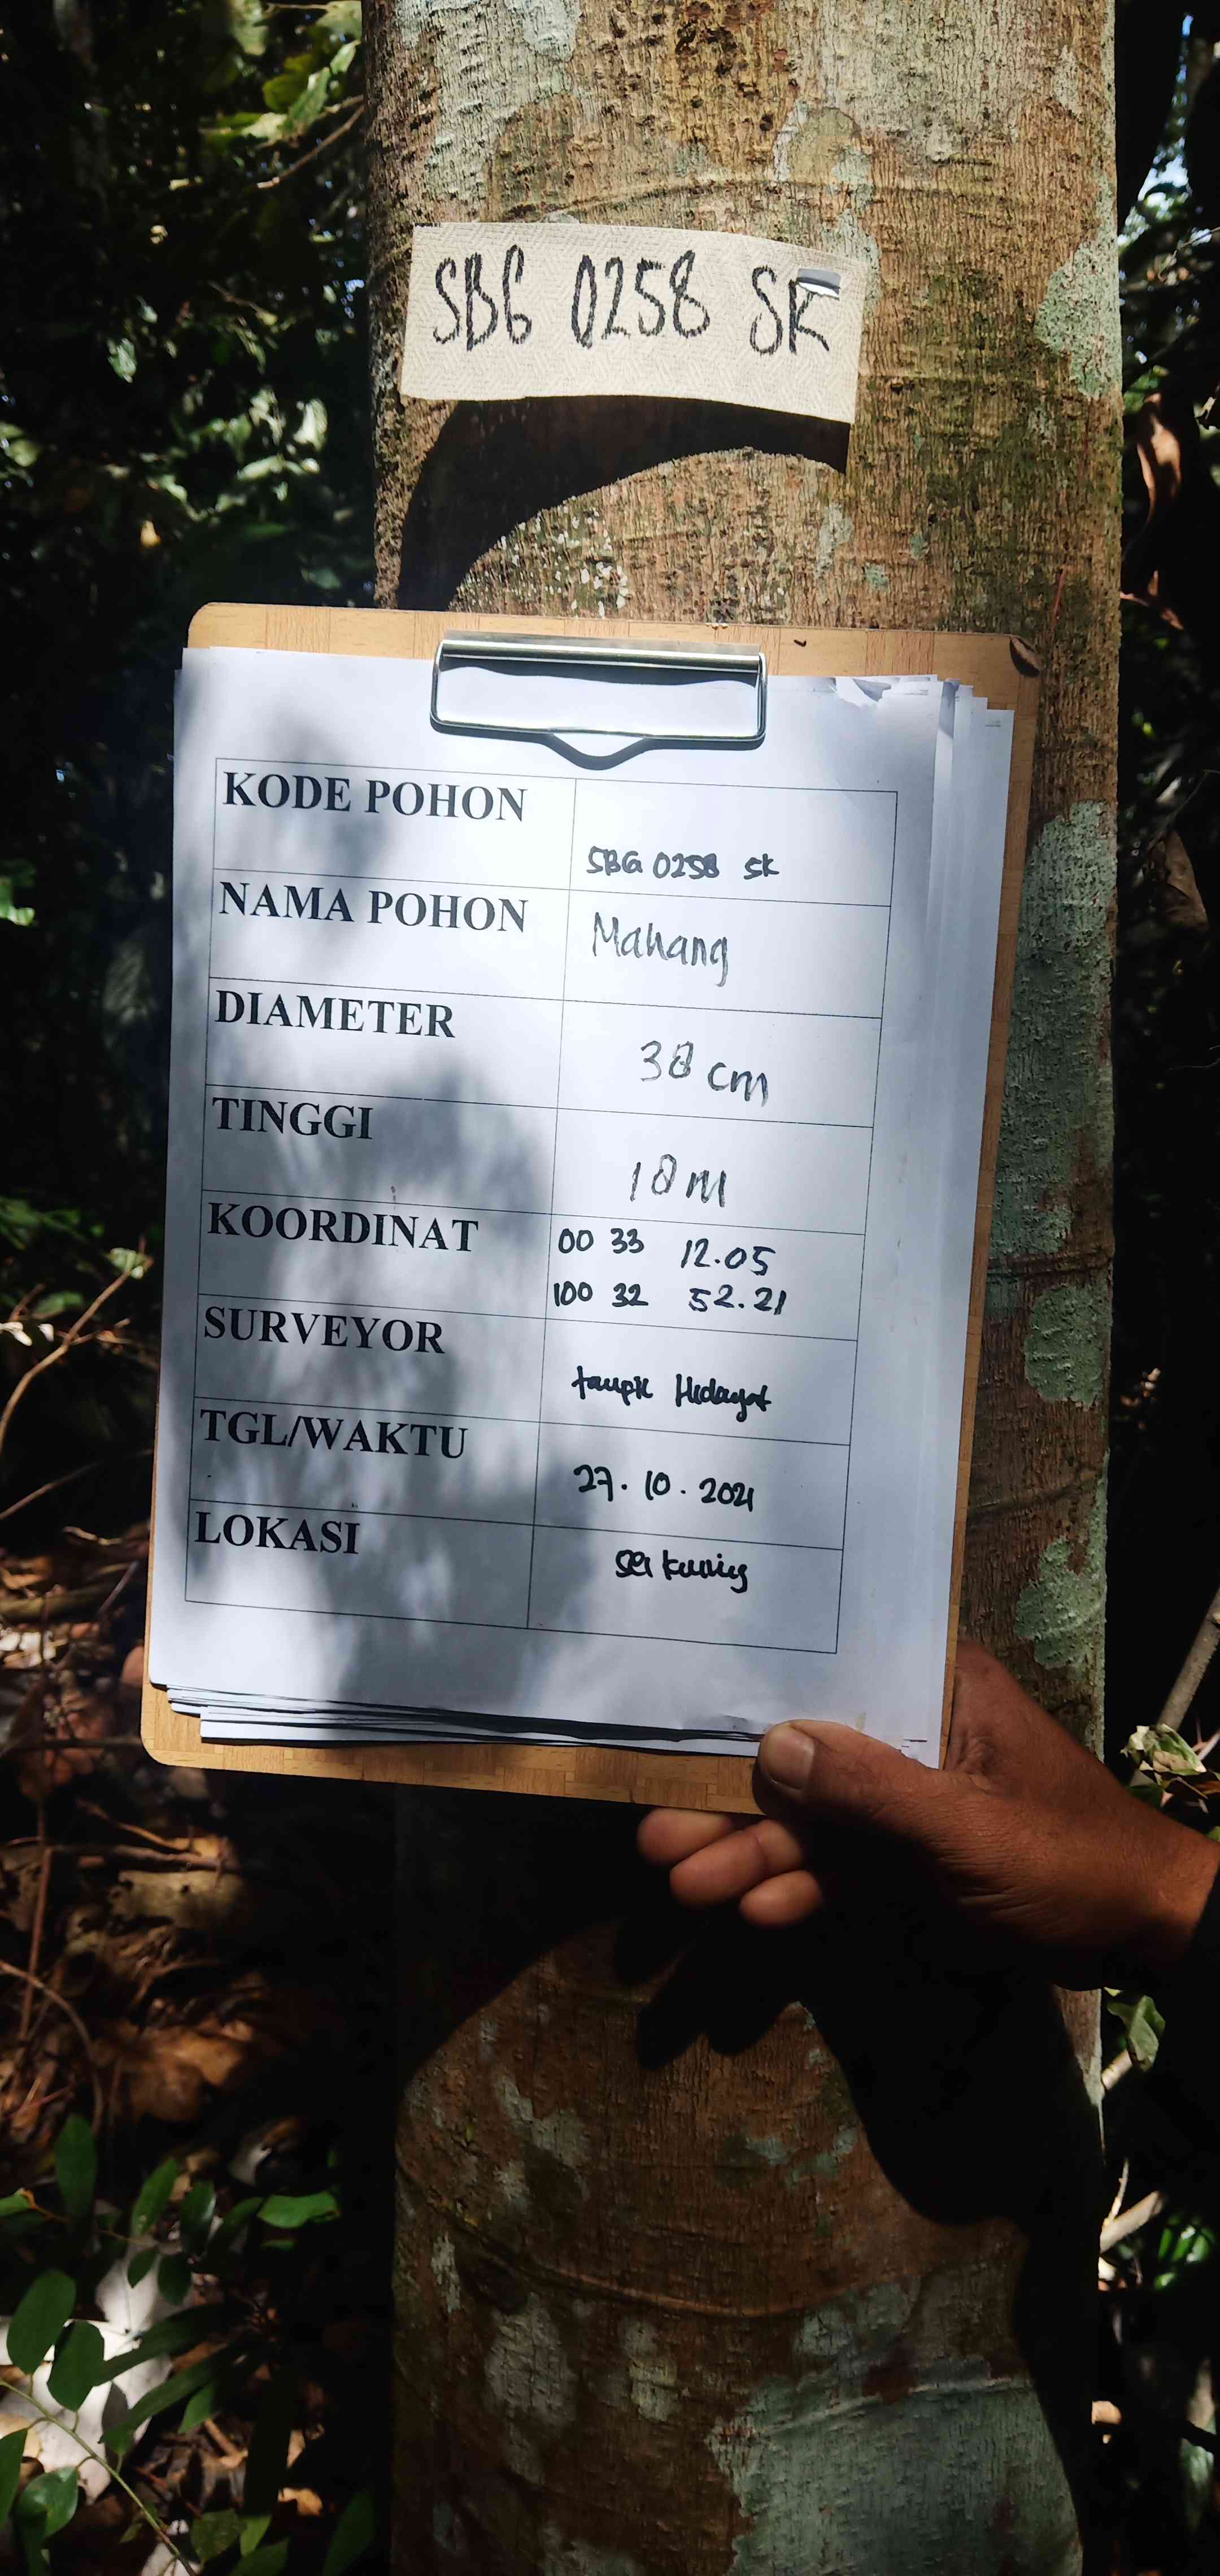 SBG 0258 SK
KODE POHON
SBG 0258 SK
NAMA POHON
Mahang
DIAMETER
38 cm
TINGGI
18 m
KOORDINAT
00 33 12.05
100 32 52.21
SURVEYOR
taupik Hidayat
TGL/WAKTU
27. 10. 2021
LOKASI
Sei kuning